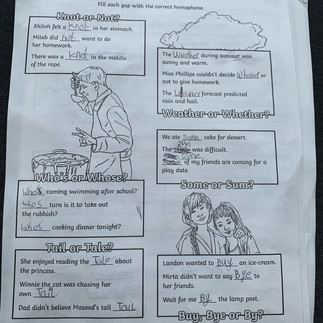 Fill each gap with the correct homophone.
Knot or Not?
Shiloh felt a knot in her stomach.
Milab did not want to do
his homework.
There was a Knot in the middle
of the rope.
The Weather during summer was
sunny and warm.
Miss Phillips couldn't decide
or not to give homework.
The forecast predicted
rain and hail.
Weather or Whether?
We ate some cake for dessert.
The was difficult.
some
of my friends are coming for a
play date.
Some or Sum?
Who's or Whose?
Who's coming swimming after school?
Whos turn is it to take out
the rubbish?
Whos cooking dinner tonight?
Tail or Tale?
She enjoyed reading the Tale about
the princess.
Winnie the cat was chasing her
own Tail
Dad didn't believe Masood's tall Tail
Landon wanted to Buy an ice-cream.
Mirta didn't want to say Bye to
her friends.
Wait for me By the lamp post.
Buy, Bye or By?